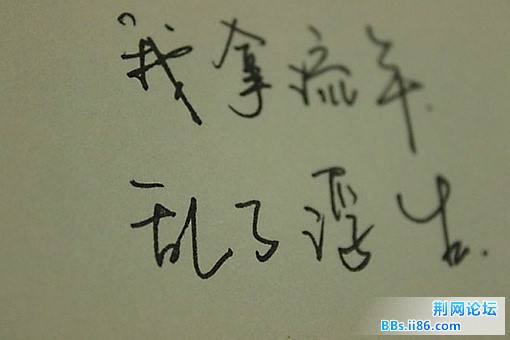 “我拿流年
乱了浮生.
荆网论坛
BBs.ii86.com